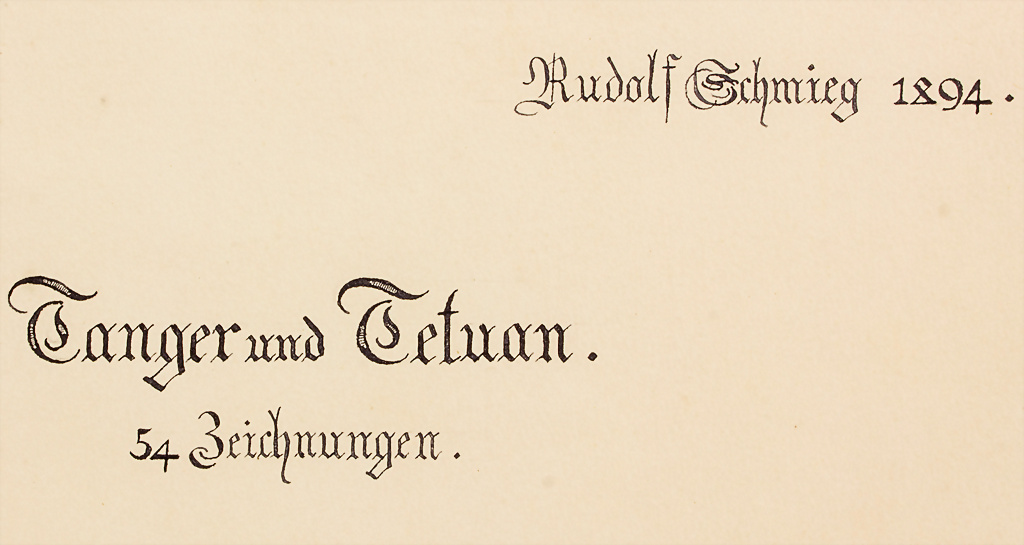 Rudolf Schmieg 1894.
Tanger und Tetuan.
54 Zeichnungen.